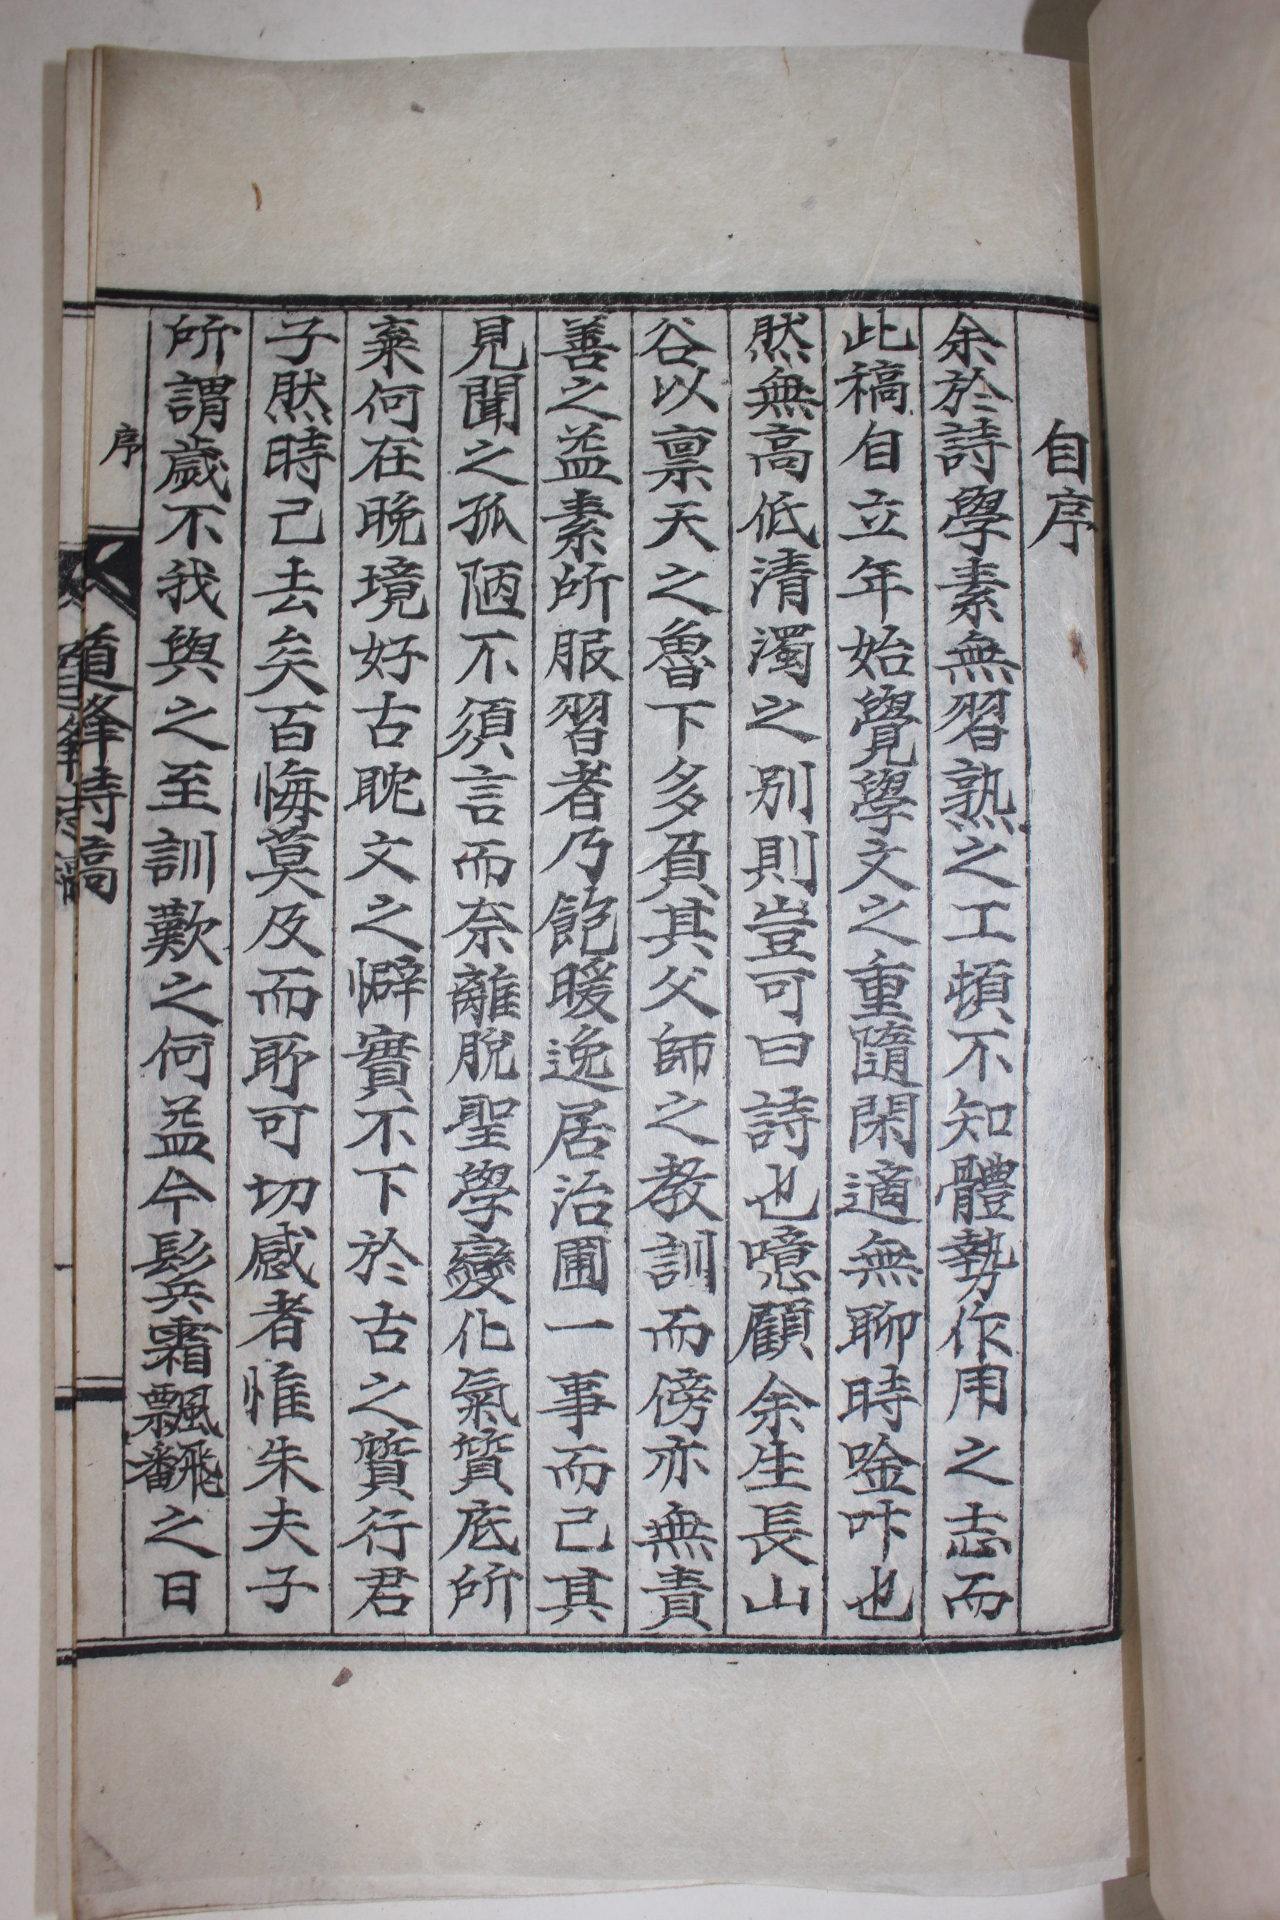 自序
余於詩學素無習熟之工頓不知體勢作用之志而
此稿自立年始覺學文之重隨閑適無聊時唫咔也
然無高低清濁之別則豈可曰詩也噫顧余生長山
谷以稟天之魯下多負其父師之教訓而傍亦無責
善之益素所服習者乃飽暖逸居治圃一事而己其
見聞之孤陋不須言而奈離脫聖學變化氣質底所
棄何在晩境好古耽文之癖實不下於古之質行君
子然時己去矣百悔莫及而耶可切感者惟朱夫子
所謂歲不我與之至訓歎之何益今髟兵霜飄飜之日
序
道峰詩稿